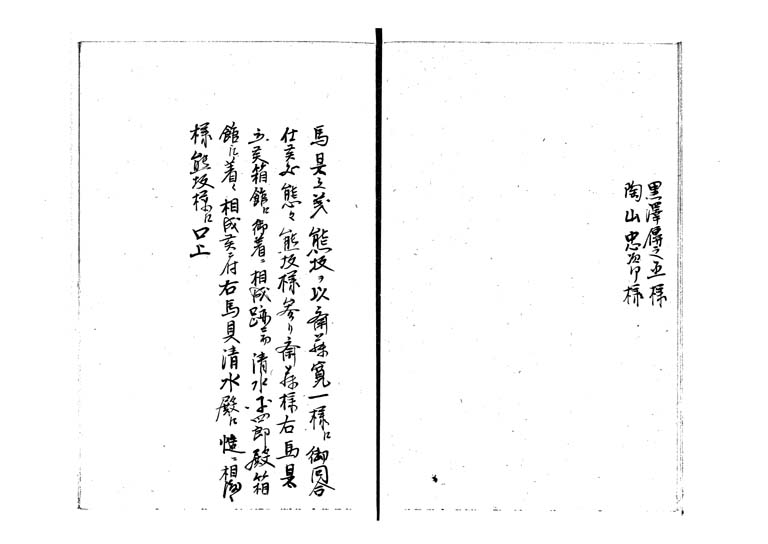 黒澤傳之丞様
陶山忠右エ門様
馬具之義熊坂ヲ以斎藤寛一様江御同合
仕候処態々熊坂様参り斎藤様右馬具
箱館江御着ニ相成跡ニ而清水平四郎殿箱
館江着ニ相成候ニ付右馬具清水殿江慥ニ相
様熊坂様江口上